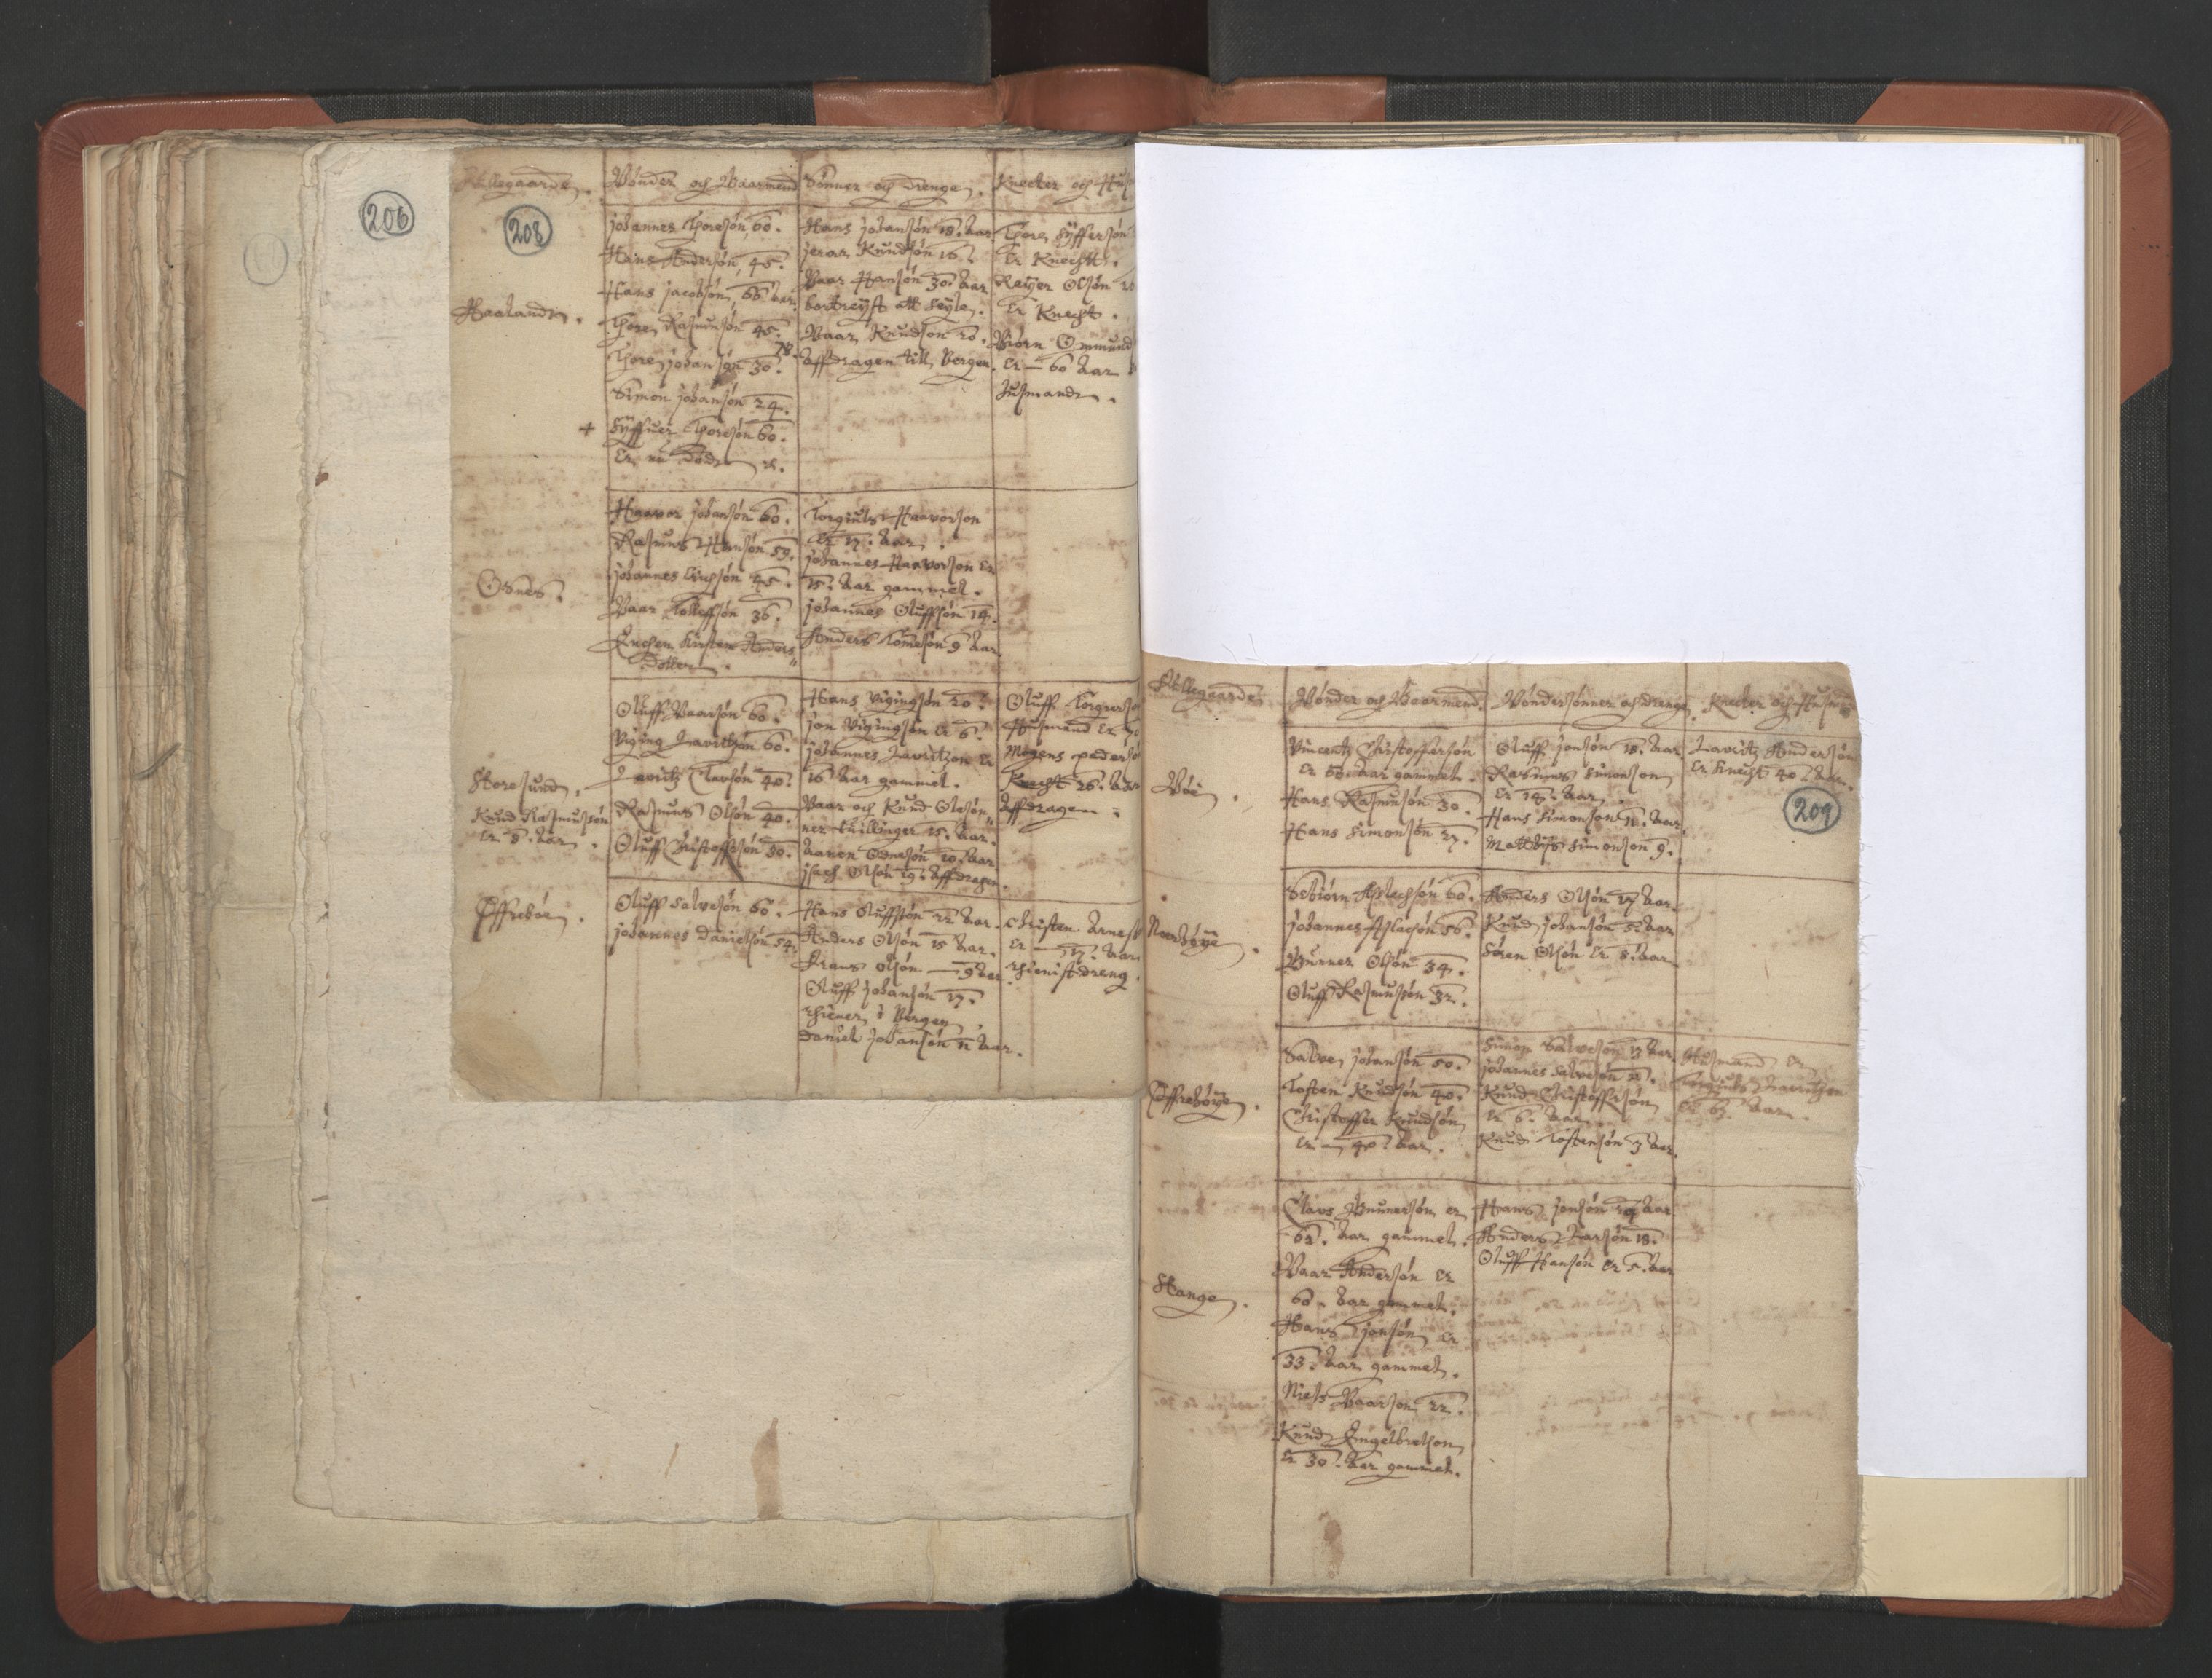 206
208
Fullegaarde.
Bønder och Baarmend
Sønner och Drenge.
Knecter och Hus
Haalandt.
Johannes Thoresøn 60.
Hans Andersøn, 45.
Hans Jacobsøn, 66 Aar.
Thore Rasmusøn 45.
Thore Johansøn 30.
Simon Johansøn 24.
+ Syffuer Thoresøn 60.
Er nu Død
Hans Johansøn 18. Aar
Knudsøn 16.
Baar Hansøn 30 Aar
bortreyst att seyle.
Baar Knudson 20.
Affdragen till Bergen.
Thore Syffersøn
Er Knechtt.
Reyer Olsøn 20
Er Knecht.
Biørn Ommund
Er — 60 Aar
Husmand.
Osnes.
Haavor Johansøn 60.
Rasmus Hansøn 59.
Johannes Erichsøn 45.
Baar Tolleffsøn 36.
Enchen Kirsten Anders
Dotter.
Torgiuls Haavorson
Er 17. Aar.
Johannes Haavorson Er
15. Aar gammel.
Johannes Oluffsøn 14.
Anders Tomesøn 9 Aar
Storesund.
Knud Rasmussøn
Er 8. Aar.
Oluff Baarsøn 60.
Viging Lavritzøn 60.
Lavritz Clavsøn 40.
Rasmus Olsøn 40.
Oluff Christoffersøn 30.
Hans Vigingsøn 20.
Jon Vigingsøn Er 6.
Johannes Lavritzon Er
16 Aar gammel.
Baar och Knud Olesøn
ner tuillinger 15. Aar.
Aanen Osmesøn 10. Aar
Isach Olsøn 19. Affdragen.
Oluff Torgersø
Husmand Er 70
Mogens pedersø
Knecht 26. Aar
Affdragen.
Øffrebøe.
Oluff Salvesøn 60.
Johannes Danielsøn 54.
Hans Oluffsøn 22 Aar.
Anders Olsøn 15 Aar.
Frans Olsøn — 9 Aar.
Oluff Johansøn 17.
thiener i Bergen
Daniel Johansøn 11 Aar.
Christen Arnes
Er — 17. Aar
thienistdreng.
Fullegaarde
Bønder och Baarmend.
Bøndersønner och drenge.
Knecter och Husmend
209
Bøe.
Vincentz Christoffersøn
Er 60. Aar gammel.
Hans Rasmusøn 30.
Hans Simonsøn 27.
Oluff Jonsøn 18. Aar
Rasmus Simonson
Er 14. Aar.
Hans Simonson 11. Aar
Matthis Simonson 9.
Lavritz Andersøn
Er Knecht 40. Aar.
Noerhøye.
Asbiørn Asslechsøn 60.
Johannes Aslacsøn 56.
Gunner Olsøn 34.
Oluff Rasmusøn 32.
Anders Olsøn 17 Aar.
Knud Johansøn Aar
Søren Olsøn Er 8. Aar
Øffrehøye.
Salve Johansøn 50.
Tosten Knudsøn 40.
Christoffer Knudsøn
Er — 40. Aar.
Simon Salvesøn 13 Aar.
Johannes Salvesøn 11.
Knud Christoffersøn
Er 6. Aar
Knud Tostensøn 3 Aar.
Husmand Er
Torgiuls Lavritzen
Er 63. Aar.
Stange.
Clavs Gunnersøn Er
62. Aar gammel.
Baar Andersøn Er
60. Aar gammel.
Hans Jonsøn Er
33. Aar gammel.
Niels Baarson 22.
Knud Engelbretson
Er 30. Aar gammel.
Hans Jonsøn 29 Aar
Anders Larsøn 18.
Oluff Hansøn Er 5. Aar